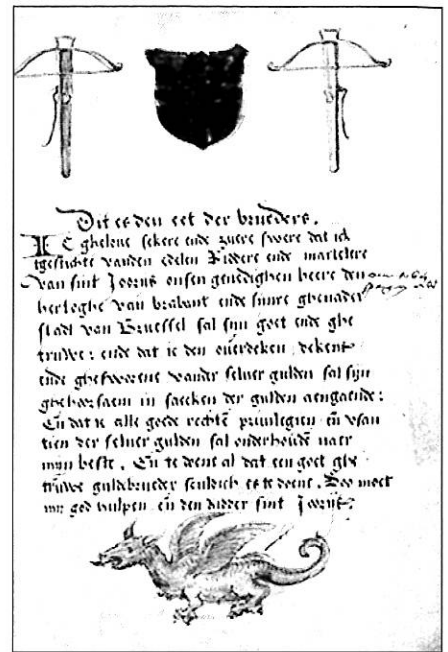 Dit es den eet der brueders.
IC ghelove sekere ende zuere swere dat ick
tgeslichte vanden edelen Riddere ende martelere
van sint Joorys onsen genedighen heere den
hertoghe van brabant ende sinre ghenader
stadt van Bruessel sal syn goet ende ghe
truwe: ende dat ic den overdeken dekens
ende ghesworene vander selver gulden sal syn
ghehoorsaem in saecken der gulden aengaende:
En dat ic alle goede rechte privilegien en usan
tien der selver gulden sal onderhoude naer
myn beste. En te doene al dat een goet ghe
truwe guldebrueder sculdich es te doene. Soo moet
my god hulpen en den ridder sint Joorys.